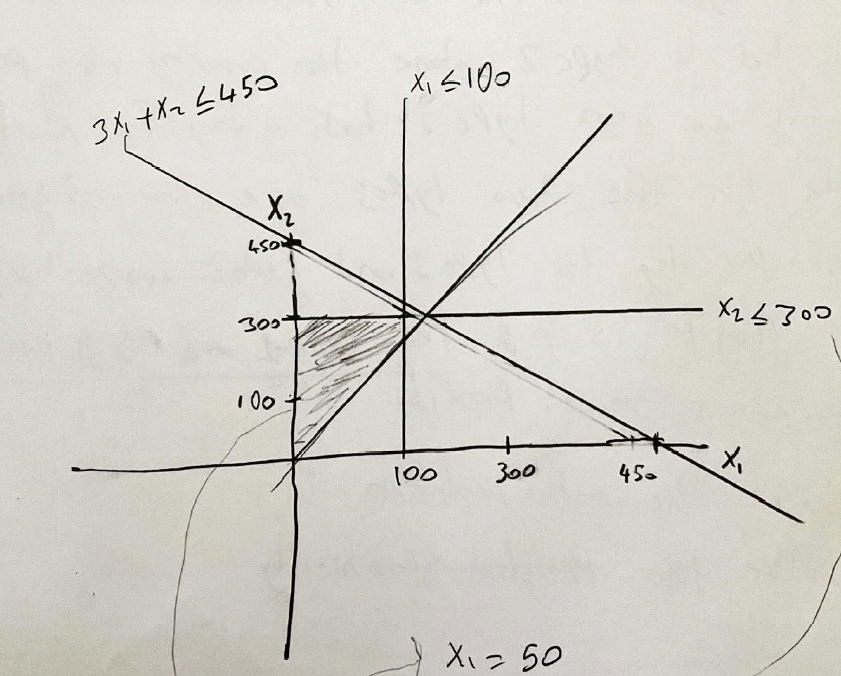 3x₁ + x₂ ≤ 450
x₁ ≤ 100
X₂
450
300
x₂ ≤ 300
100
100
300
450
X₁
x₁ = 50